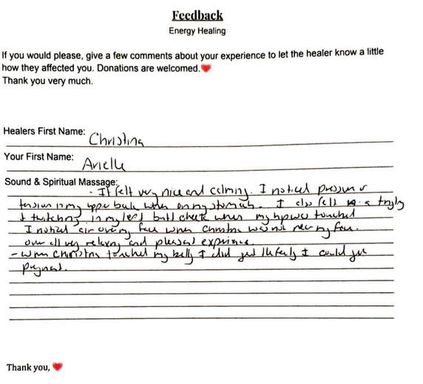 Feedback
Energy Healing
If you would please, give a few comments about your experience to let the healer know a little
how they affected you. Donations are welcomed.❤
Thank you very much.
Healers First Name: Christina
Your First Name: Arielle
Sound & Spiritual Massage:
- It felt very nice and calming. I noticed pressure
tension in my upper back when on my stomach. I also felt a tingly
& twitching in my left butt cheek when my was touched
I noticed air over my face when Christina was not near my face.
over all very relaxing and pleasant experience.
- when Christina touched my belly I did feel I could get
pregnant.
Thank you, ❤